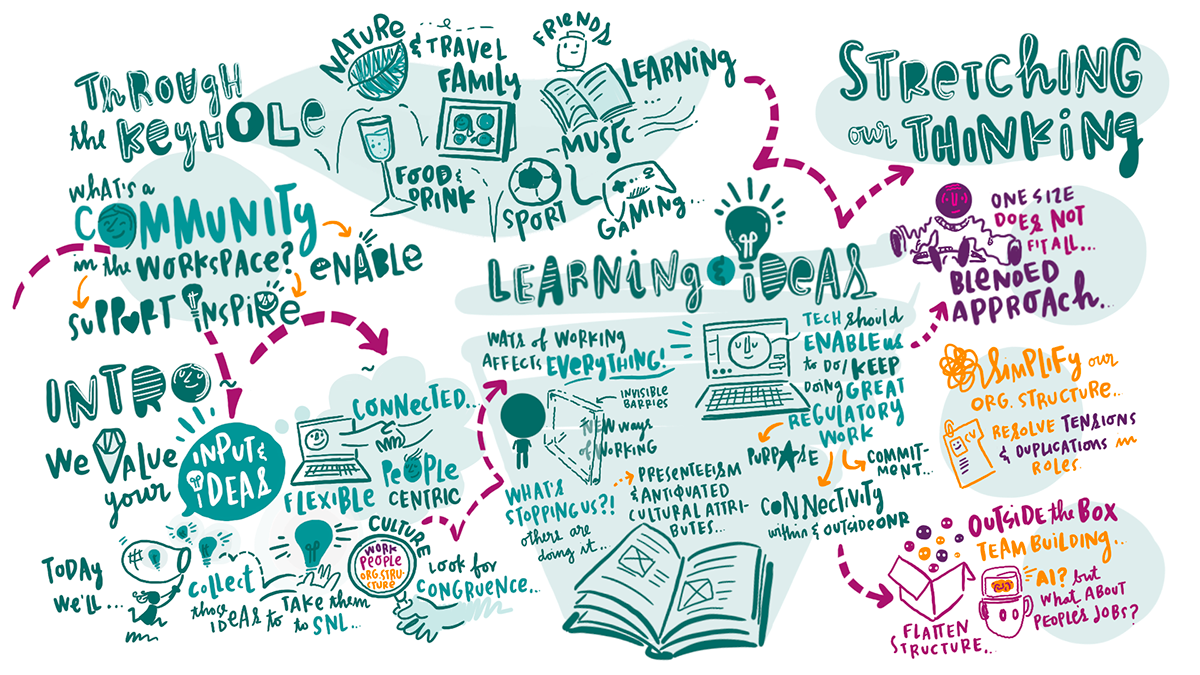 THROUGH
the KEYHOLE
WHAT'S A
COMMUNITY
in the WORKSPACE?
ENABLE
SUPPORT INSPIRE
NATURE
& TRAVEL
FAMILY
FRIENDS
LEARNING
MUSIC
FOOD &
DRINK
SPORT
GAMING...
INTRO
We VALUE
your
INPUT &
IDEAS
CONNECTED...
FLEXIBLE
PEOPLE
CENTRIC
TODAY
WE'LL...
COLLECT
those
IDEAS to
TAKE them
to SNL...
CULTURE
WORK
PEOPLE
ORG. STRU-
CTURE
LOOK for
CONGRUENCE...
LEARNING & IDEAS
WAYS of WORKING
AFFECTS EVERYTHING!
INVISIBLE
BARRIES
NEW ways
of WORKING
WHAT'S
STOPPING US?!
others are
doing it...
PRESENTEEISM
& ANTIQUATED
CULTURAL ATTRI-
BUTES...
TECH should
ENABLE us
to DO/KEEP
DOING GREAT
REGULATORY
WORK
PURPOSE
COMMIT-
MENT...
CONNECTIVITY
within & outside ONR
STRETCHING
our THINKING
ONE SIZE
DOES NOT
FIT ALL...
BLENDED
APPROACH...
SIMPLIFY our
ORG. STRUCTURE...
CV
RESOLVE TENSIONS
& DUPLICATIONS in
ROLES.
OUTSIDE the BOX
TEAM BUILDING...
FLATTEN
STRUCTURE...
AI? but
WHAT ABOUT
PEOPLE'S JOBS?